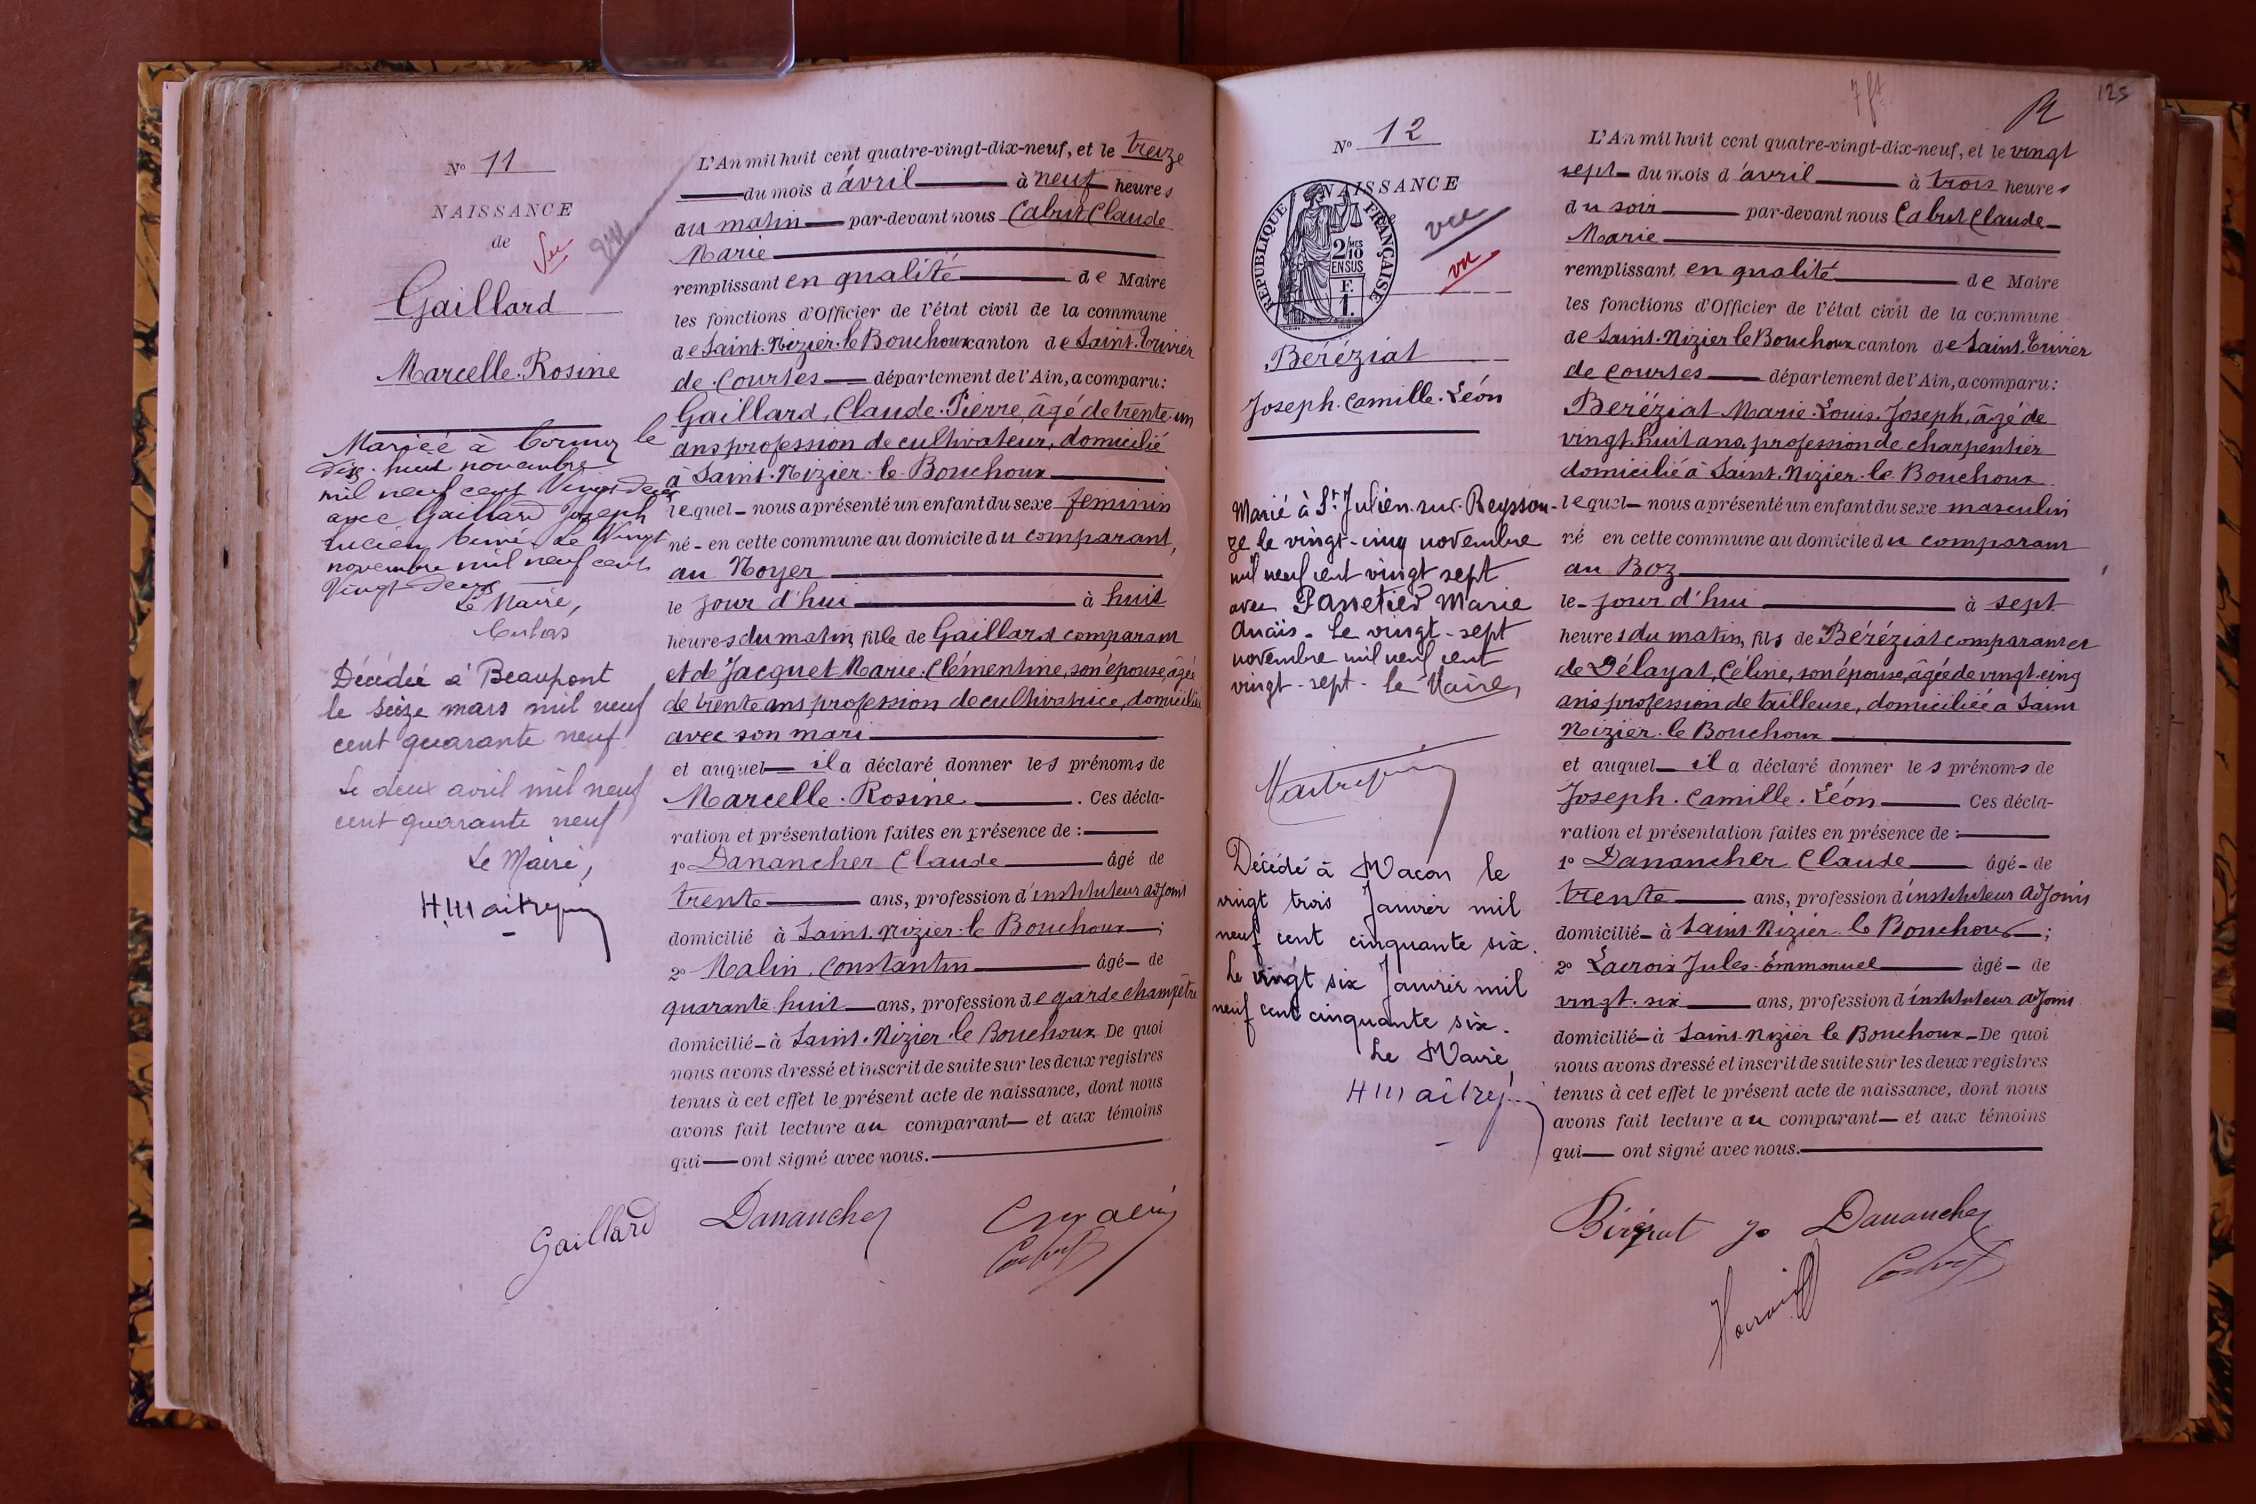 Nº 11
NAISSANCE
de
Vu
Gaillard
Marcelle. Rosine
Mariée à Cormoz le
dix-huit novembre
mil neuf cent Vingt-deux
avec Gaillard Joseph
Lucien
novembre mil neuf cent
Vingt-deux
Le Maire,
Décédée à Beaupont
le seize mars mil neuf
cent quarante neuf
Le deux avril mil neuf
cent quarante neuf
Le Maire,
L'An mil huit cent quatre-vingt-dix-neuf, et le treize
du mois d'avril à neuf heures
du matin par-devant nous Cabut Claude
Marie
remplissant en qualité de Maire
les fonctions d'Officier de l'état civil de la commune
de Saint. Nizier. le Bouchoux canton de Saint. Trivier
de Courtes département de l'Ain, a comparu:
Gaillard, Claude. Pierre, âgé de trente-un
ans profession de cultivateur, domicilié
à Saint. Nizier. le. Bouchoux
lequel nous a présenté un enfant du sexe féminin
né en cette commune au domicile du comparant,
au Noyer
le jour d'hui à huit
heures du matin, fille de Gaillard comparant
et de Jacquet Marie. Clémentine, son épouse, âgée
de trente ans profession de cultivatrice, domiciliée
avec son mari
et auquel il a déclaré donner les prénoms de
Marcelle. Rosine . Ces décla-
ration et présentation faites en présence de :
1º Danancher Claude âgé de
trente ans, profession d'instituteur adjoint
domicilié à Saint. Nizier. le Bouchoux ;
2º Malin, Constantin âgé de
quarante-huit ans, profession de garde champêtre
domicilié à Saint. Nizier. le Bouchoux De quoi
nous avons dressé et inscrit de suite sur les deux registres
tenus à cet effet le présent acte de naissance, dont nous
avons fait lecture au comparant et aux témoins
qui ont signé avec nous.
Gaillard Danancher
Cabut
125
Nº 12
NAISSANCE
RÉPUBLIQUE FRANÇAISE
2/10 MES
EN SUS
F.
1.
vue
vu
Béréziat
Joseph. Camille. Léon
Marié à St Julien. sur. Reyssou-
ze le vingt-cinq novembre
mil neuf cent vingt sept
avec Panetier Marie
Anaïs. Le vingt-sept
novembre mil neuf cent
vingt-sept. Le Maire,
Décédé à Macon le
vingt trois Janvier mil
neuf cent cinquante six.
Le vingt six Janvier mil
neuf cent cinquante six.
Le Maire,
L'An mil huit cent quatre-vingt-dix-neuf, et le vingt
sept du mois d'avril à trois heures
du soir par-devant nous Cabut Claude
Marie
remplissant en qualité de Maire
les fonctions d'Officier de l'état civil de la commune
de Saint. Nizier le Bouchoux canton de Saint. Trivier
de Courtes département de l'Ain, a comparu:
Beréziat Marie. Louis. Joseph, âgé de
vingt huit ans, profession de charpentier
domicilié à Saint. Nizier. le. Bouchoux
lequel nous a présenté un enfant du sexe masculin
né en cette commune au domicile du comparant
au Boz
le jour d'hui à sept
heures du matin, fils de Béréziat comparant et
de Délayat, Céline, son épouse, âgée de vingt-cinq
ans profession de tailleuse, domiciliée à Saint
Nizier. le Bouchoux
et auquel il a déclaré donner les prénoms de
Joseph. Camille. Léon Ces décla-
ration et présentation faites en présence de :
1º Danancher Claude âgé de
trente ans, profession d'instituteur adjoint
domicilié à Saint. Nizier. le Bouchoux ;
2º Lacroix Jules. Emmanuel âgé de
vingt. six ans, profession d'instituteur adjoint
domicilié à Saint-Nizier le Bouchoux De quoi
nous avons dressé et inscrit de suite sur les deux registres
tenus à cet effet le présent acte de naissance, dont nous
avons fait lecture au comparant et aux témoins
qui ont signé avec nous.
Danancher
Cabut